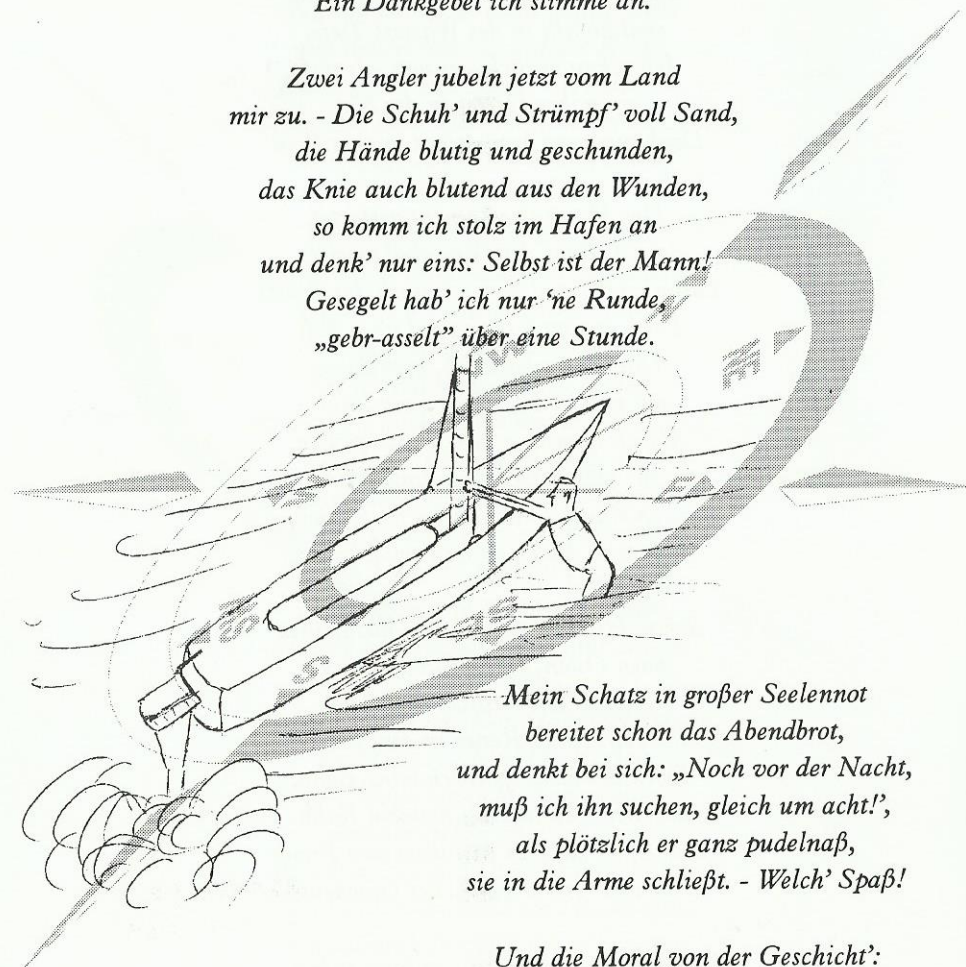 Ein Dankgebet ich stimme an.
Zwei Angler jubeln jetzt vom Land
mir zu. - Die Schuh’ und Strümpf’ voll Sand,
die Hände blutig und geschunden,
das Knie auch blutend aus den Wunden,
so komm ich stolz im Hafen an
und denk’ nur eins: Selbst ist der Mann!
Gesegelt hab’ ich nur ‘ne Runde,
„gebr-asselt” über eine Stunde.
Mein Schatz in großer Seelennot
bereitet schon das Abendbrot,
und denkt bei sich: „Noch vor der Nacht,
muß ich ihn suchen, gleich um acht!’,
als plötzlich er ganz pudelnaß,
sie in die Arme schließt. - Welch’ Spaß!
Und die Moral von der Geschicht’:
N
NW
NE
E
SE
S
SW